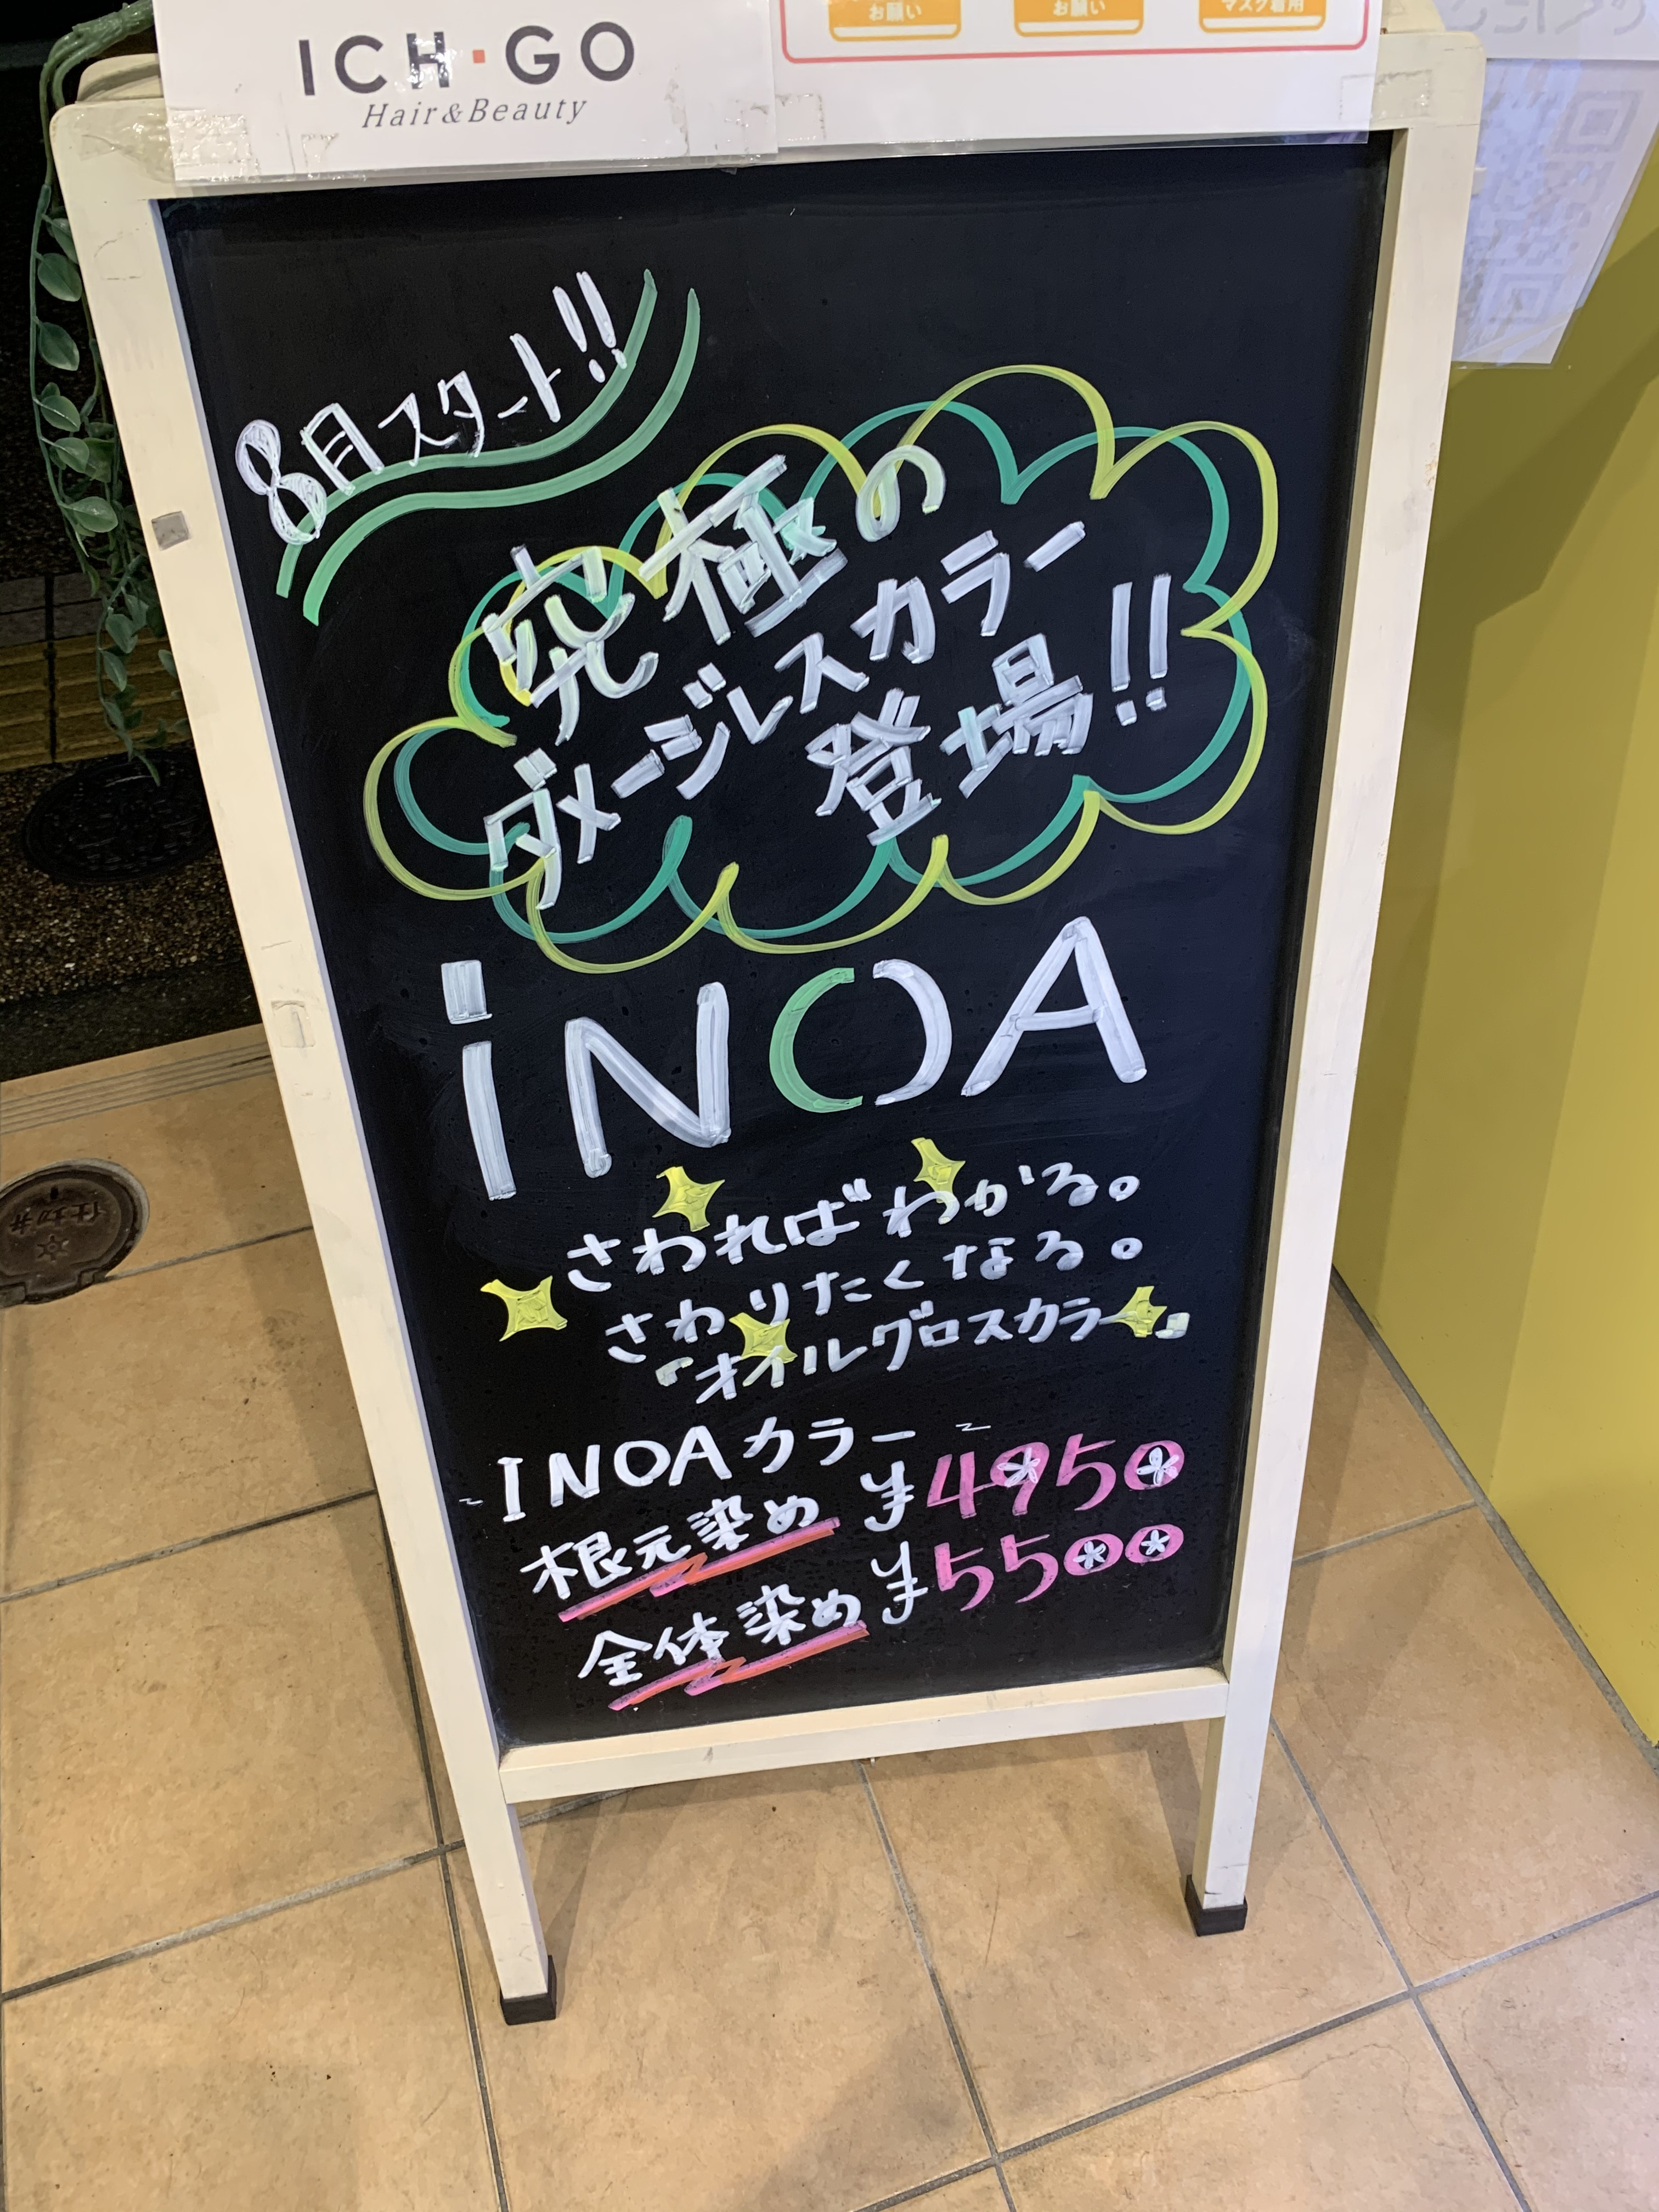 ICH·GO
Hair&Beauty
お願い
お願い
マスク着用
8月スタート!!
究極の
ダメージレスカラー
登場!!
iNOA
さわればわかる。
さわりたくなる。
『オイルグロスカラー』
INOAカラー
根元染め ¥4950
全体染め ¥5500
仕切弁